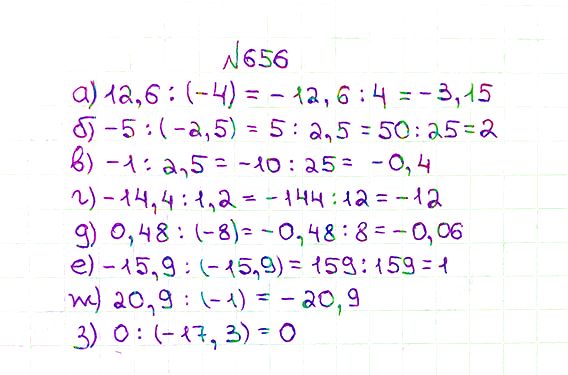 №656
а) 12,6 : (-4) = - 12,6 : 4 = - 3,15
б) -5 : (-2,5) = 5 : 2,5 = 50 : 25 = 2
в) -1 : 2,5 = -10 : 25 = -0,4
г) -14,4 : 1,2 = -144 : 12 = -12
д) 0,48 : (-8) = -0,48 : 8 = -0,06
е) -15,9 : (-15,9) = 159 : 159 = 1
ж) 20,9 : (-1) = - 20,9
з) 0 : (-17,3) = 0